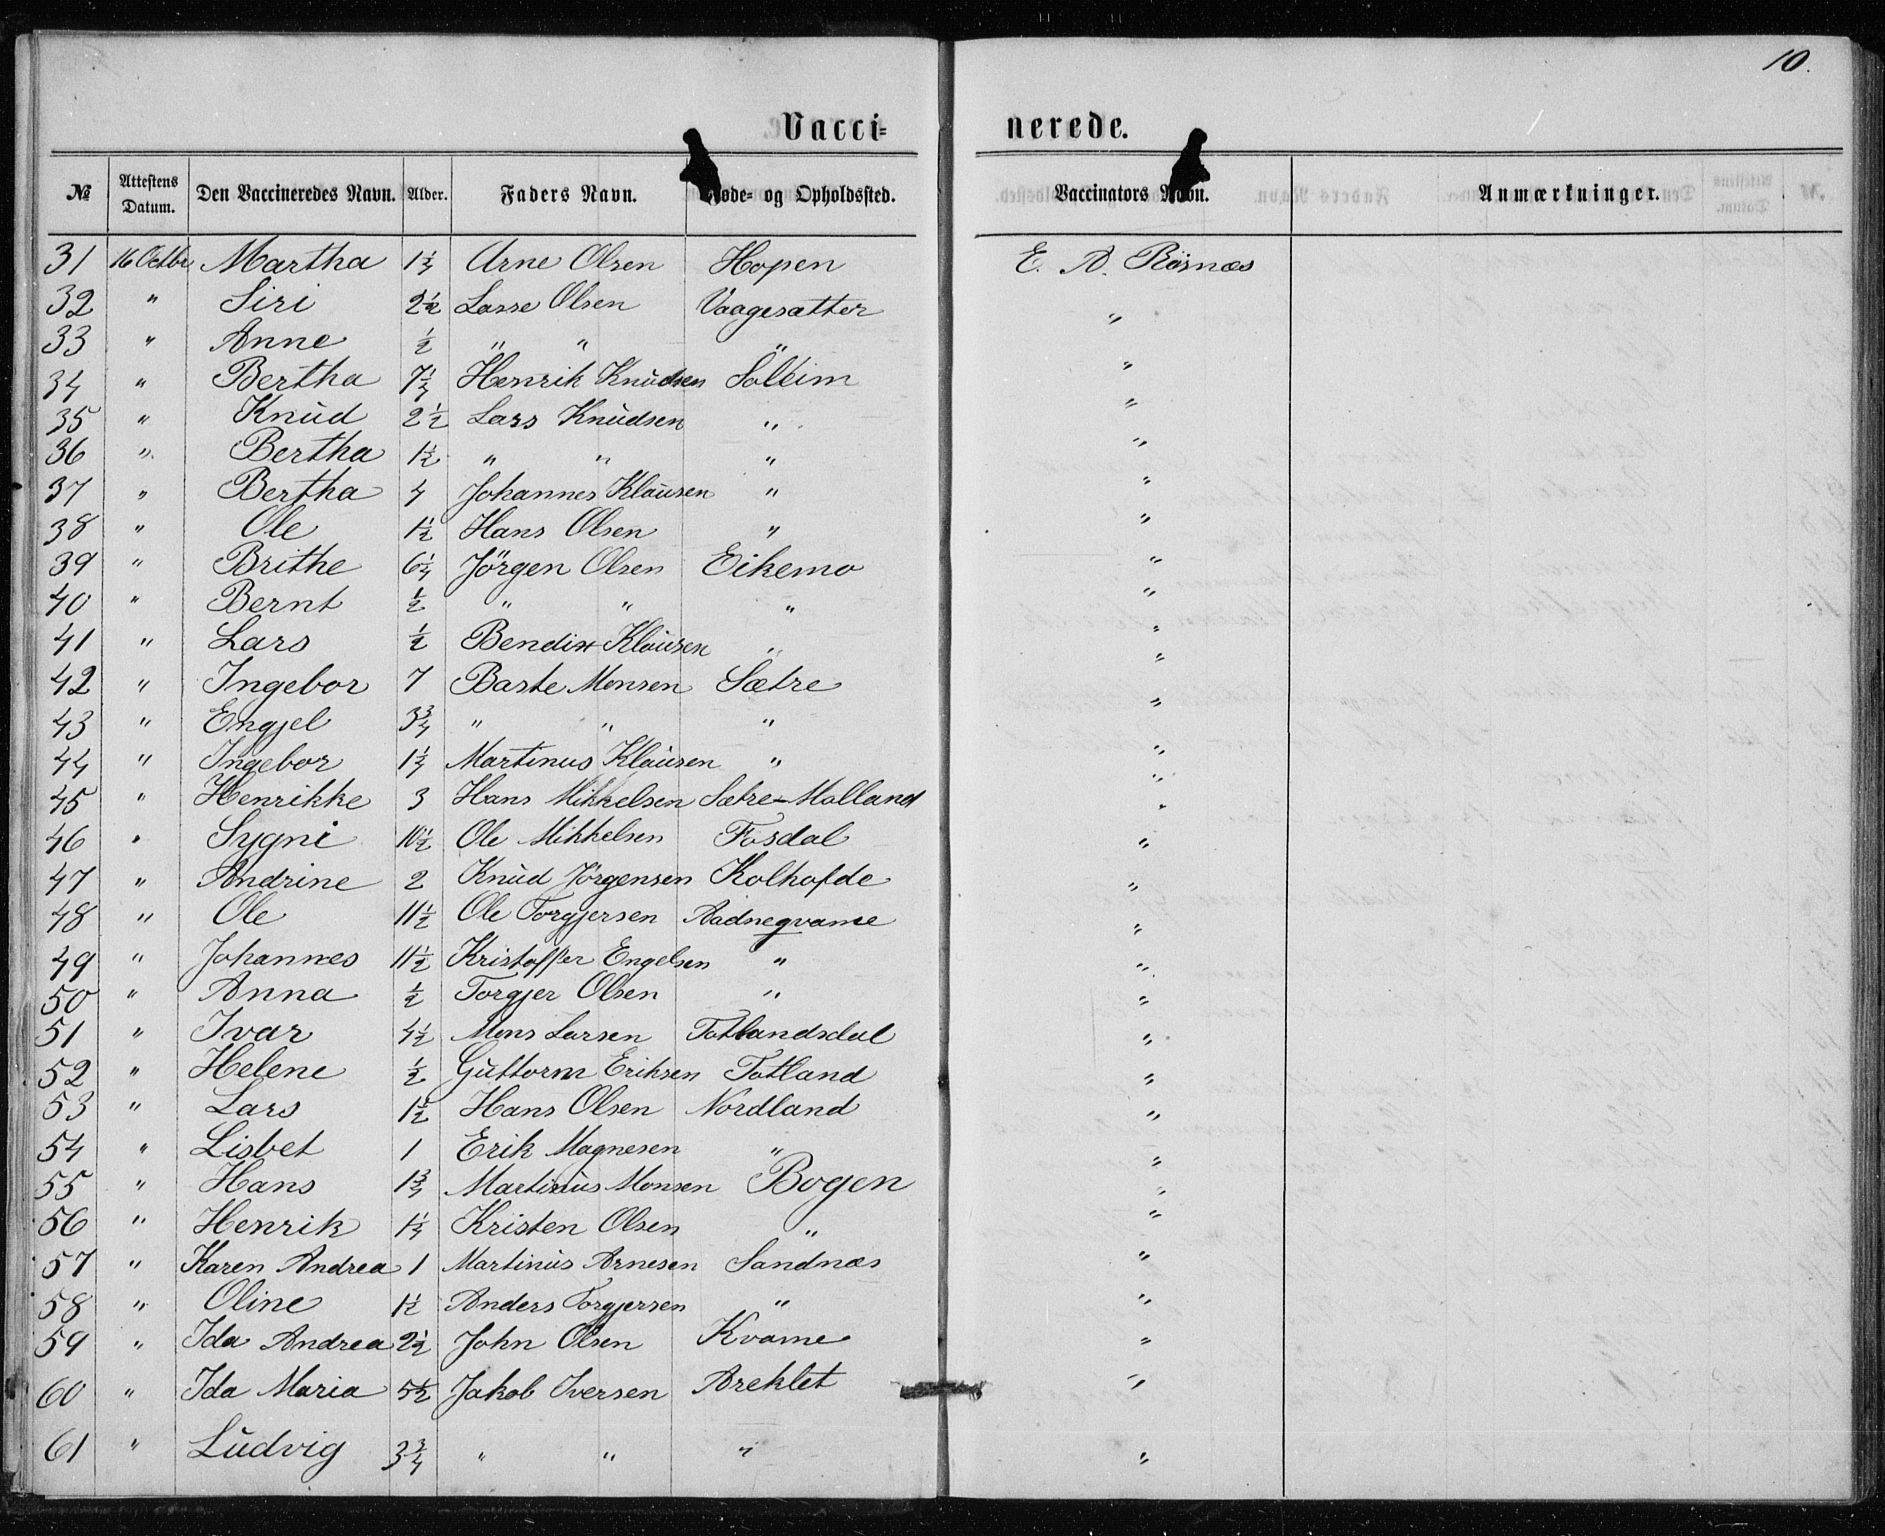 10.
Vacci- nerede.
№ Attestens Datum. Den Vaccineredes Navn. Alder. Faders Navn. Føde- og Opholdssted. Vaccinators Navn. Anmærkninger.
31 16 Octbr Martha 1 1/4 Arne Olsen Hopen E. A. Risnæs
32 " Siri 2 1/2 Lasse Olsen Vaagesætter "
33 " Anne 1/2 " " " "
34 " Bertha 7 1/4 Henrik Knudsen Soleim "
35 " Knud 2 1/2 Lars Knudsen " "
36 " Bertha 1 1/2 " " " "
37 " Bertha 4 Johannes Klausen " "
38 " Ole 1 1/2 Hans Olsen " "
39 " Brithe 6 1/4 Jörgen Olsen Eikemo "
40 " Bernt 1/2 " " " "
41 " Lars 1/2 Bendix Klausen " "
42 " Ingebor 7 Baste Monsen Sætre "
43 " Engjel 3 3/4 " " " "
44 " Ingebor 1 1/4 Martinus Klausen " "
45 " Henrikke 3 Hans Mikkelsen Sætre-Molland "
46 " Sygni 10 1/2 Ole Mikkelsen Fosdal "
47 " Andrine 2 Knud Jørgensen Kolhofde "
48 " Ole 11 1/2 Ole Torgjersen Aadneqvame "
49 " Johannes 11 1/2 Kristoffer Engelsen " "
50 " Anna 1/2 Torgjer Olsen " "
51 " Ivar 4 1/2 Mons Larsen Totlandsdal "
52 " Helene 1/2 Guttorm Eriksen Totland "
53 " Lars 1 1/2 Hans Olsen Nordland "
54 " Lisbet 1 Erik Magnesen " "
55 " Hans 1 3/4 Martinus Monsen Bogen "
56 " Henrik 1 1/4 Kristen Olsen " "
57 " Karen Andrea 1 Martinus Arnesen Sandnæs "
58 " Oline 1 1/2 Anders Torgjersen " "
59 " Ida Andrea 2 1/2 John Olsen Kvame "
60 " Ida Maria 5 1/2 Jakob Iversen Areklet "
61 " Ludvig 3 3/4 " " " "